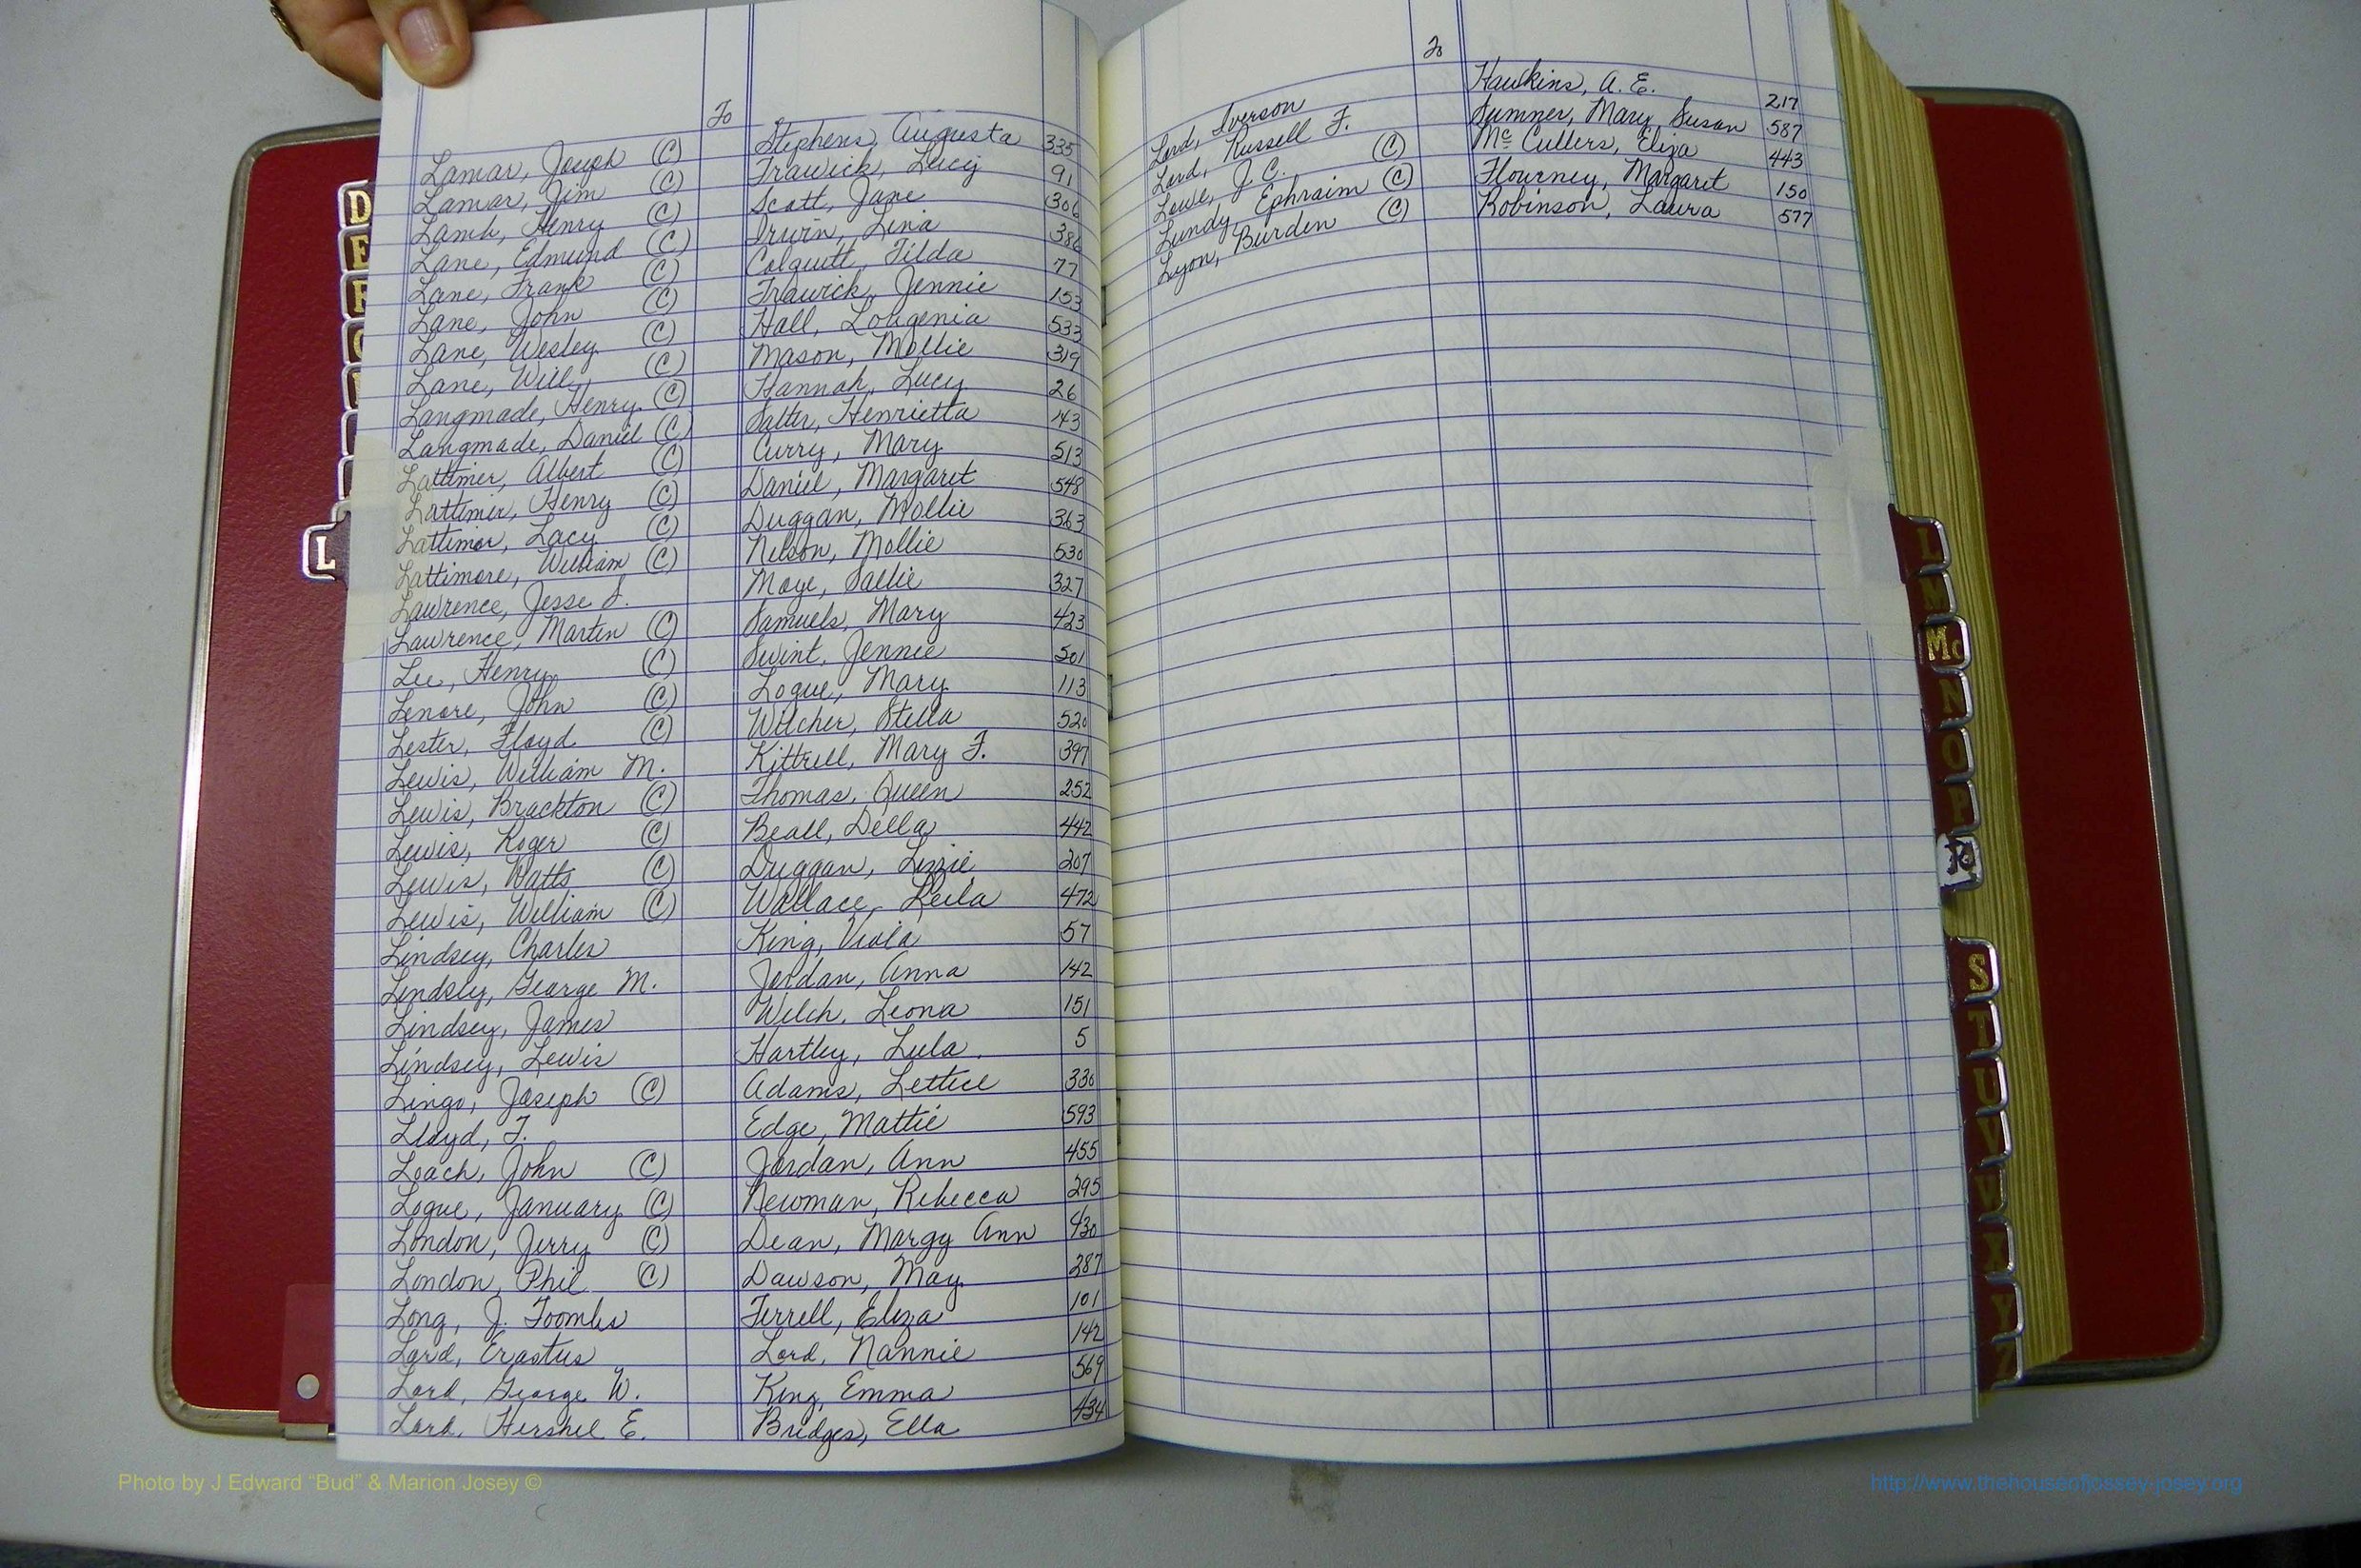 To
Lamar, Joseph (C) Stephens, Augusta 335
Lamar, Jim (C) Trawick, Lucy 91
Lamb, Henry (C) Scott, Jane 306
Lane, Edmund (C) Irwin, Lina 386
Lane, Frank (C) Colquitt, Tilda 77
Lane, John (C) Trawick, Jennie 153
Lane, Wesley (C) Hall, Lougenia 533
Lane, Will, (C) Mason, Mollie 319
Langmade, Henry (C) Hannah, Lucy 26
Langmade, Daniel (C) Salter, Henrietta 143
Lattimer, Albert (C) Curry, Mary 513
Lattimer, Henry (C) Daniel, Margaret 548
Lattimer, Lacy (C) Duggan, Mollie 363
Lattimore, William (C) Nelson, Mollie 530
Lawrence, Jesse S. Moye, Sallie 327
Lawrence, Martin (C) Samuels, Mary 423
Lee, Henry (C) Swint, Jennie 501
Lenore, John (C) Logue, Mary 113
Lester, Floyd (C) Wilcher, Stella 520
Lewis, William M. Kittrell, Mary F. 397
Lewis, Brackton (C) Thomas, Queen 252
Lewis, Roger (C) Beall, Della 442
Lewis, Watts (C) Duggan, Lizzie 207
Lewis, William (C) Wallace, Leila 472
Lindsey, Charles King, Viola 57
Lindsey, George M. Jordan, Anna 142
Lindsey, James Welch, Leona 151
Lindsey, Lewis Hartley, Lula 5
Lingo, Joseph (C) Adams, Lettice 330
Lloyd, T. Edge, Mattie 593
Loach, John (C) Jordan, Ann 455
Logue, January (C) Newman, Rebecca 295
London, Jerry (C) Dean, Margy Ann 430
London, Phil (C) Dawson, May 287
Long, J. Toombs Terrell, Eliza 101
Lord, Erastus Lord, Nannie 142
Lord, George W. King, Emma 569
Lord, Hershel E. Bridges, Ella 434
To
Lord, Iverson Hawkins, A. E. 217
Lord, Russell F. Sumner, Mary Susan 587
Lowe, J. C. (C) McCullers, Eliza 443
Lundy, Ephraim (C) Flourney, Margaret 150
Lyon, Burden (C) Robinson, Laura 577
D
E
F
L
L
M
Mc
N
O
P
R
S
T
U
V
W
X
Y
Z
Photo by J Edward "Bud" & Marion Josey ©
http://www.thehouseofjossey-josey.org